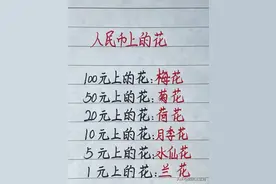 人民币上的花
100元上的花:梅花
50元上的花:菊花
20元上的花:荷花
10元上的花:月季花
5元上的花:水仙花
1元上的花:兰花